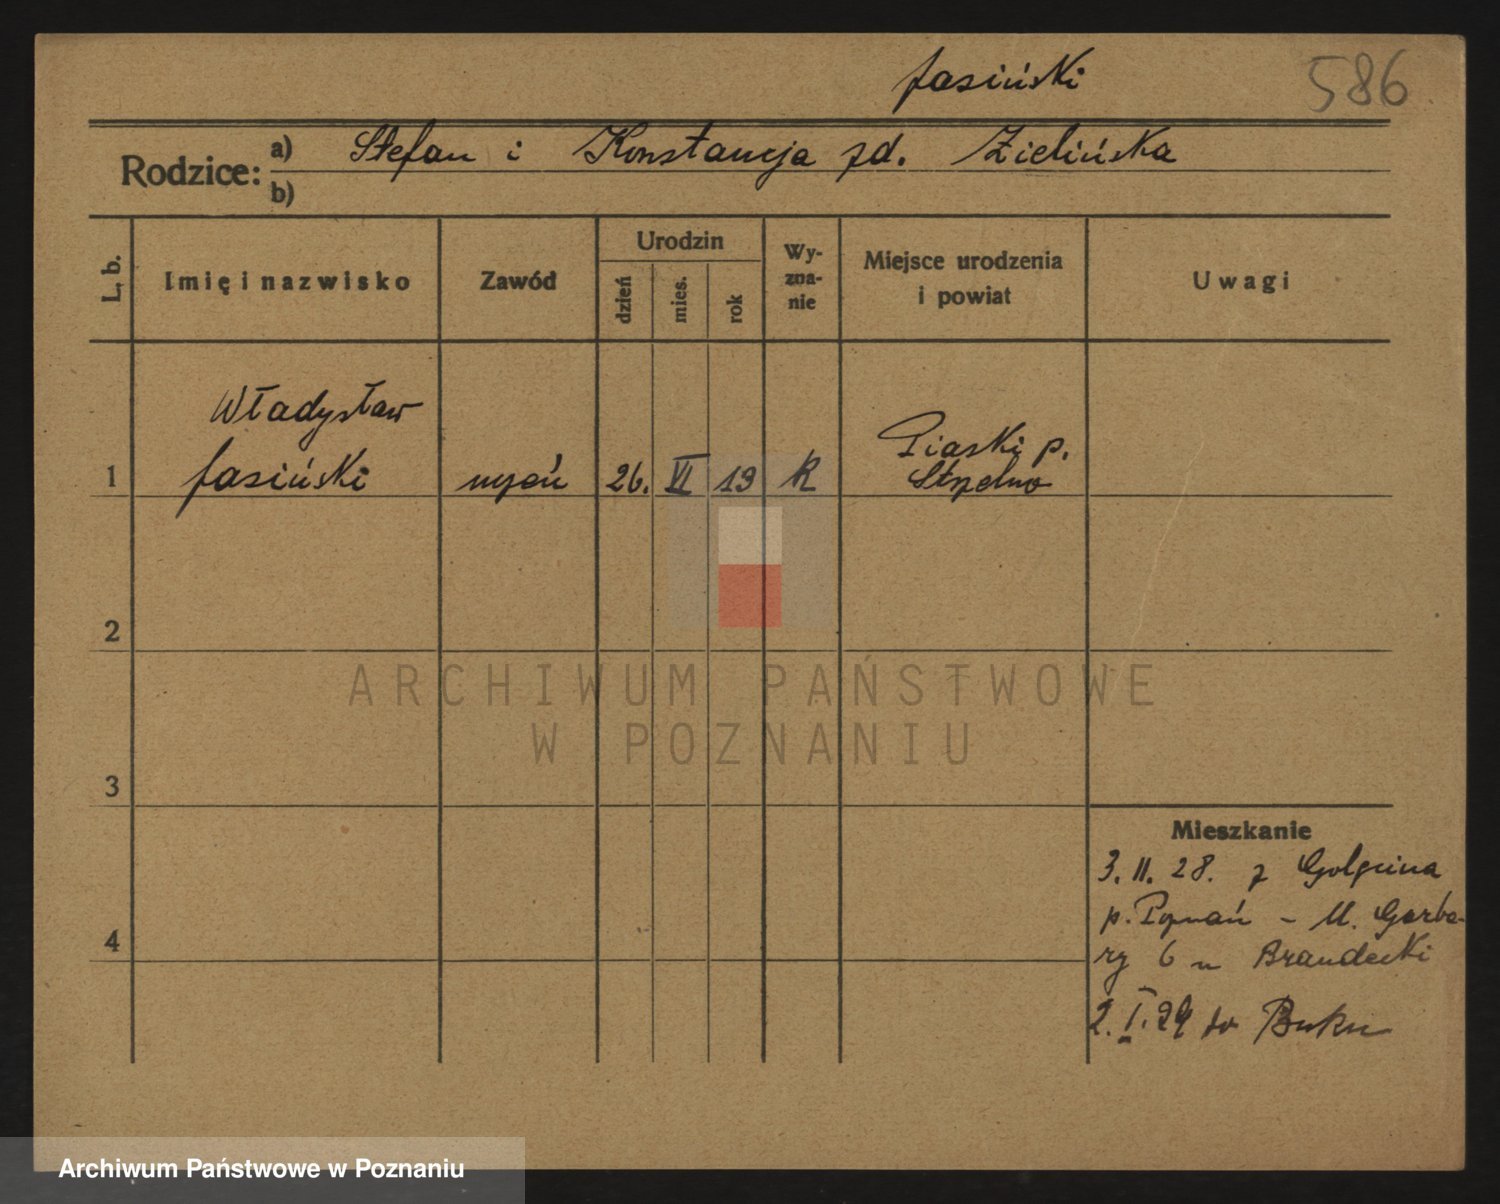 Jasiński
586
Rodzice:
a) Stefan i Konstancja zd. Zielińska
b)
L. b.
Imię i nazwisko
Zawód
Urodzin
dzień
mies.
rok
Wy-
zna-
nie
Miejsce urodzenia
i powiat
Uwagi
Władysław
1 Jasiński uczeń 26. VI 13 R
Piaski p.
Strzelno
2
3
4
Mieszkanie
3. II. 28. z Golęcina
p. Poznań - M. Garba-
ry 6 u Brandecki
2. I. 29 do Buku
ARCHIWUM PAŃSTWOWE
W POZNANIU
Archiwum Państwowe w Poznaniu